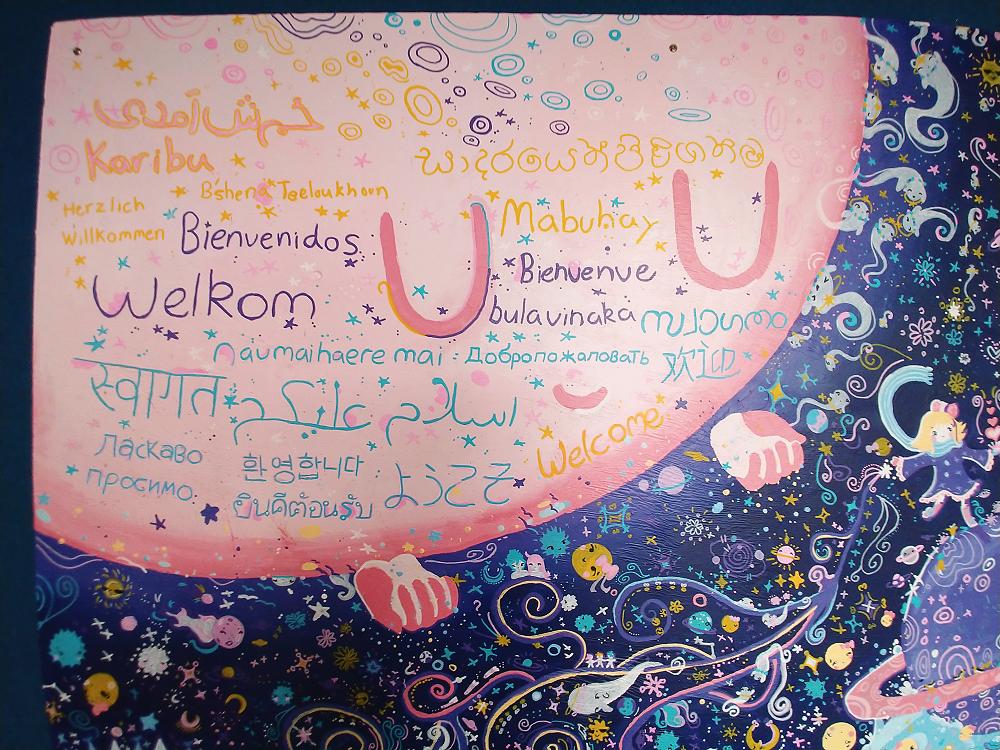 خوش آمدی
Karibu
B'shena Teeloukhoun
Herzlich
Willkommen
Bienvenidos
Mabuhay
Bienvenue
Welkom
bulavinaka
സ്വാഗതം
naumaihaere mai : Добропожаловать 欢迎
स्वागत
اسلام علیکم
Welcome
Ласкаво
просимо
환영합니다
ยินดีต้อนรับ
ようこそ